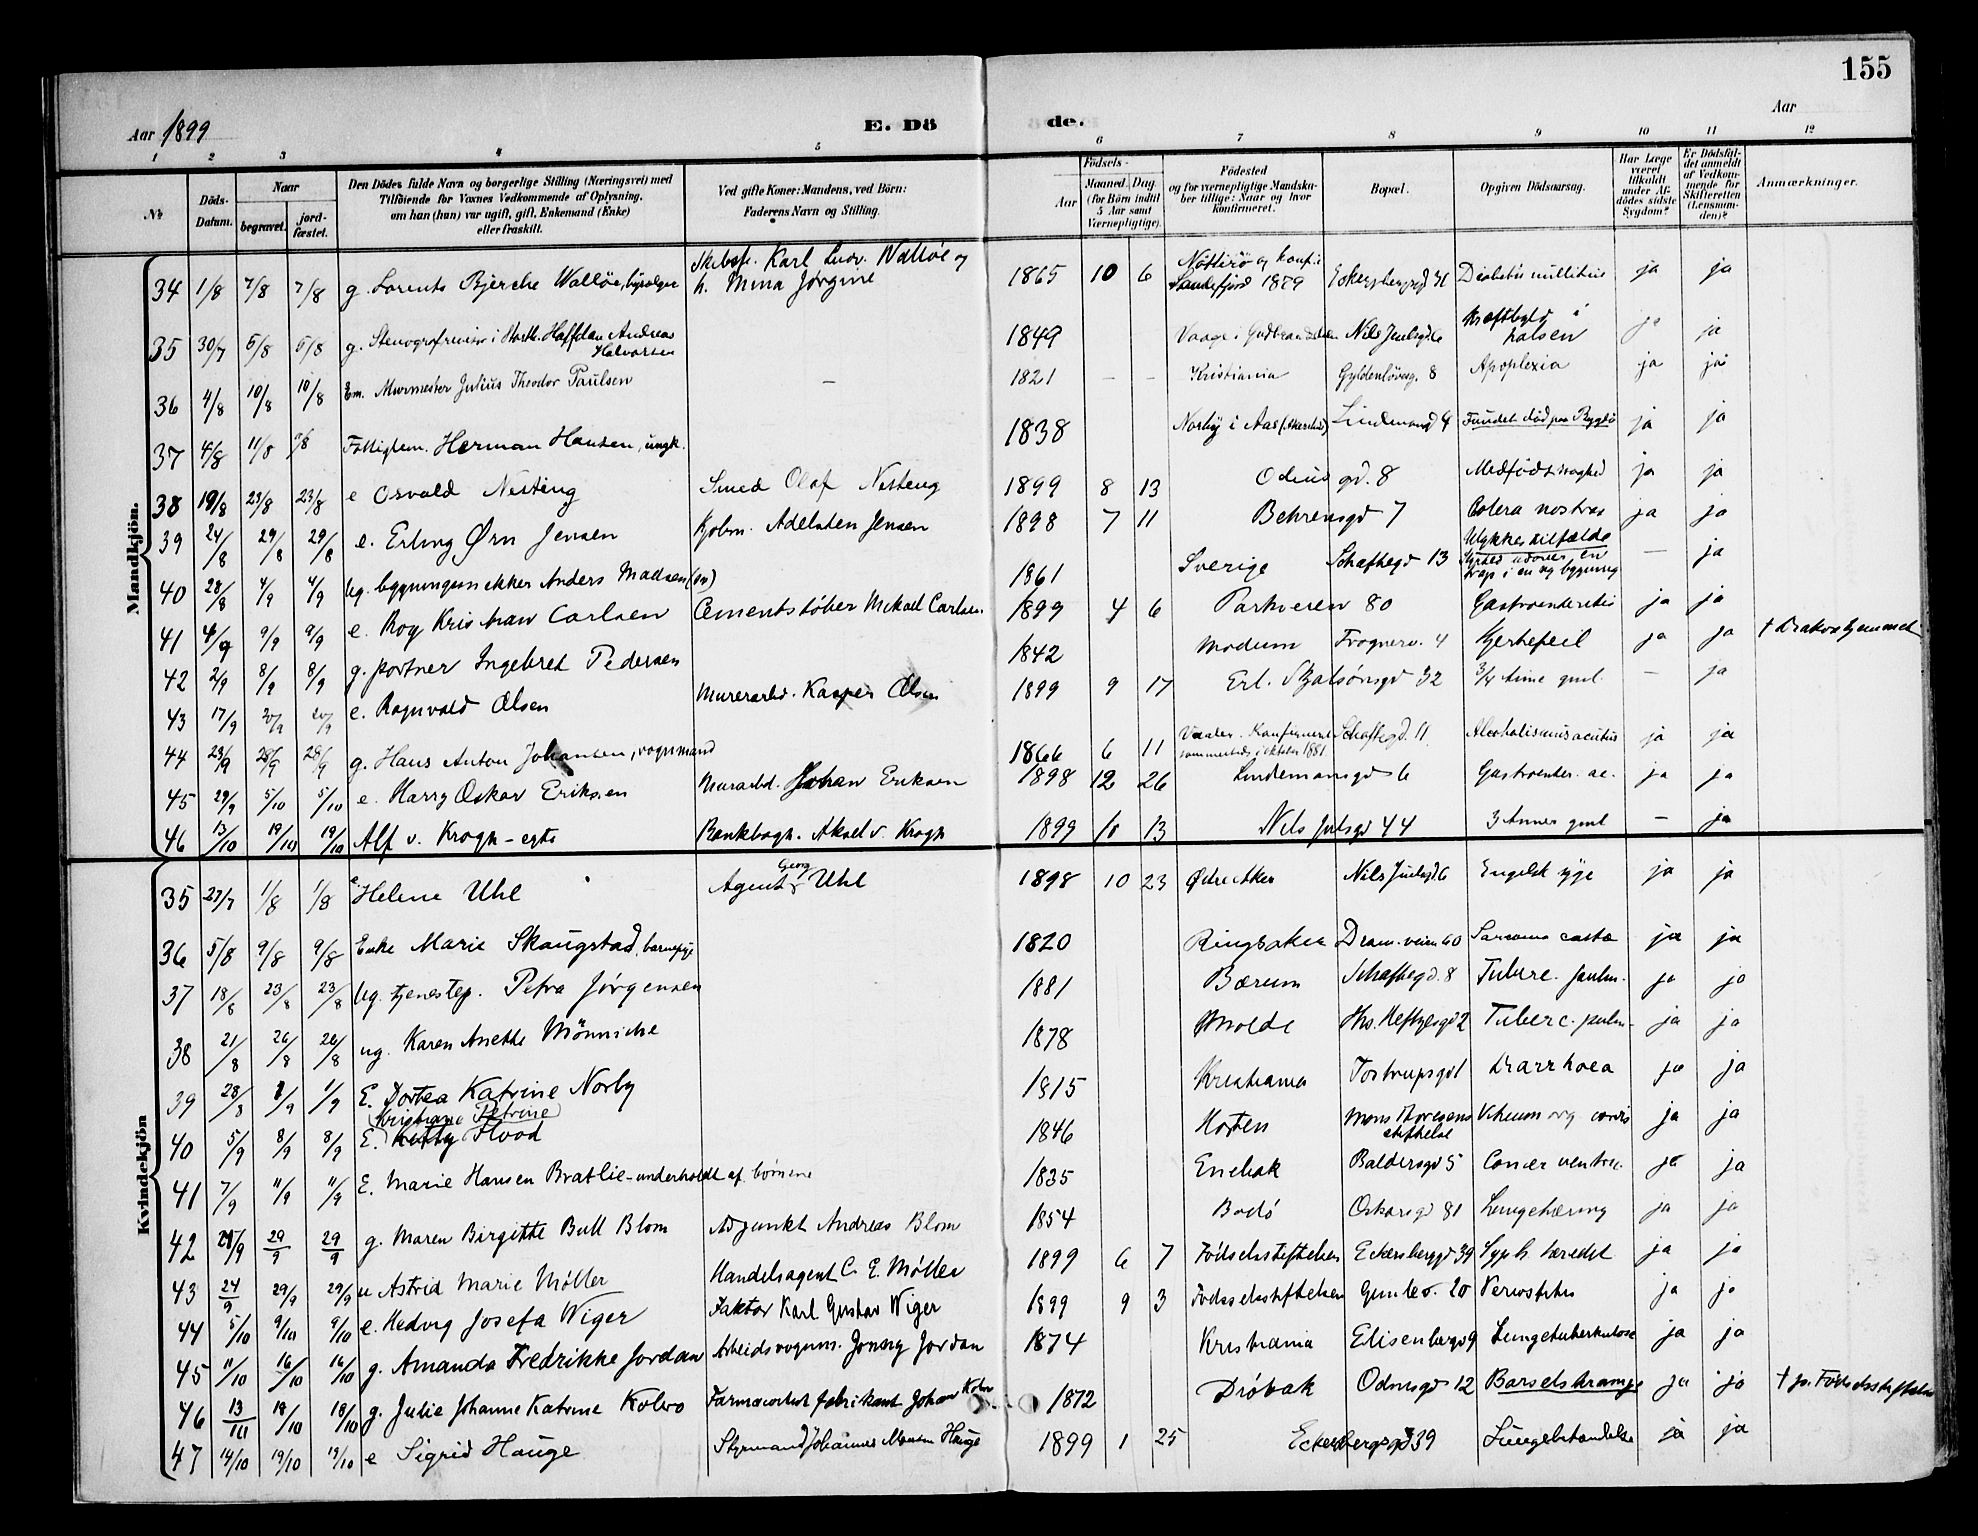 155
Aar 1899
E. Dö
de.
Aar
1 2 3 4 5 6 7 8 9 10 11 12
Nr.
Döds-Datum.
Naar
begravet.
jord-fæstet.
Den Dödes fulde Navn og borgerlige Stilling (Næringsvei) med
Tilföiende for Voxnes Vedkommende af Oplysning,
om han (hun) var ugift, gift, Enkemand (Enke)
eller fraskilt.
Ved gifte Koner: Mandens, ved Börn:
Faderens Navn og Stilling.
Födsels-
Aar
Maaned. Dag.
(for Börn indtil
5 Aar samt
Værnepligtige).
Födested
og for værnepligtige Mandska-
ber tillige: Naar og hvor
konfirmeret.
Bopæl.
Opgiven Dödsaarsag.
Har Læge
været
tilkaldt
under Af-
dödes sidste
Sygdom?
Er Dödsfal-
det anmeldt
af Vedkom-
mende for
Skifteretten
(Lensman-
den)?
Anmærkninger.
Mandkjön.
34 1/8 7/8 7/8 g. Lorents Bjerche Walløe, Skibsf. Karl Ludv. Walløe og h. Mina Jørgine 1865 10 6 Nøtterø og konf. i Sandefjord 1879 Eckersbergsgd 31 Diabetes mellitus ja ja
35 30/7 5/8 5/8 g. Stenografrevisor i Storth. Haftdan Andreas Halvorsen 1849 Vaage i Gudbrandsdalen Nils Juelsgd 6 Kræftbyld i halsen ja ja
36 4/8 10/8 10/8 Em. Murmester Julius Theodor Paulsen – 1821 – – Kristiania Gyldenløvesg. 8 Apoplexia ja ja
37 4/8 11/8 Fattiglem. Herman Hansen, ungk. 1838 Norby i Aas Lindemansgd 4 Fundet død paa Bygdø ja ja
38 19/8 23/8 23/8 e Osvald Nesteng Smed Olaf Nesteng 1899 8 13 Odins gd. 8 Medfødt svaghed ja ja
39 24/8 29/8 29/8 e. Erling Ørn Jensen Kjøbm. Adelsten Jensen 1898 7 11 Behrensgd 7 Colera nostras ja ja
40 28/8 4/9 4/9 ug. bygningssnekker Anders Madsen 1861 Sverige Schaftesgd 13 Ulykkestilfælde Styrted udover en trap i en ny bygning – ja
41 4/9 9/9 9/9 e. Roy Kristian Carlsen Cementstøber Mikael Carlsen 1899 4 6 Parkveien 80 Gastroenteritis ja ja
42 2/9 8/9 8/9 g. portner Ingebret Pedersen 1842 Modum Frognerv. 4 Hjertefeil ja ja
43 17/9 20/9 20/9 e. Ragnvald Olsen Murerarbd. Kasper Olsen 1899 9 17 Erl. Skjalsønsgd 32 3/4 time gml. – ja
44 23/9 28/9 28/9 g. Hans Anton Johansen, vognmand 1866 6 11 Vaaler. Konfirmeret sammesteds i oktober 1881. Schaftegd. 11. Alcoholismus acutus ja ja
45 29/9 5/10 5/10 e. Harry Oskar Eriksen Murarbd. Johan Eriksen 1898 12 26 Lindemansgd 6 Gastroenter. ac. ja ja
46 13/10 19/10 19/10 Alf v. Krogh – egte Bankbogh. Aksel v. Krogh 1899 10 13 Nils Julsgd 44 3 timer gml – ja
Kvindekjön
35 27/7 1/8 1/8 e Helene Uhl Agent Georg Uhl 1898 10 23 Østre Aker Nils Juelsgd. 6 Engelsk syge ja ja
36 5/8 9/8 9/8 Enke Marie Skaugstad, barnepige 1820 Ringsaker Dram.veien 60 Sarcoma costæ ja ja
37 18/8 23/8 23/8 ug. tjenestep. Petra Jørgensen 1881 Bærum Schaftegd. 8 Tuberc. pulm. ja ja
38 21/8 26/8 26/8 ug. Karen Anette Mønniche 1878 Molde Ths. Heftyesgd 2 Tuberc. pulm. ja ja
39 28/8 1/9 1/9 E. Dortea Katrine Norby 1815 Kristiania Tostrupsgd 1 Diarrhoea ja ja
40 5/9 8/9 8/9 E. (Kristiane Petrine) Kitty Flood 1846 Horten Mons Thoresens stiftelse Vitium org cordis ja ja
41 7/9 11/9 11/9 E. Marie Hansen Bratlie – underholdt af børnene 1835 Enebak Baldersgd 5 Cancer ventric. ja ja
42 21/9 29/9 29/9 g. Maren Birgitte Bull Blom Adjunkt Andreas Blom 1854 Bodø Oskarsgd 81 Lungetæring ja ja
43 24/9 29/9 29/9 u Astrid Marie Møller Handelsagent C. E. Møller 1899 6 7 Fødselsstiftelsen Eckersbergsgd 39 Syph. hæredit ja ja
44 5/10 9/10 9/10 e. Hedvig Josefa Wiger Faktor Karl Gustav Wiger 1899 9 3 Fødselsstiftelsen Gimlev. 20 Periostitis ja ja
45 11/10 16/10 16/10 g. Amanda Fredrikke Jordan Arbeidsvognm. Jonny Jordan 1874 Kristiania Elisenbergv 9 Lungetuberkulose ja ja
46 13/10 18/10 18/10 g. Julie Johanne Katrine Kolero Farmaceutisk fabrikant Johan 1872 Drøbak Odinsgd 12 Barselskrampe ja ja † på Fødselsstiftelsen
47 14/10 19/10 19/10 e Sigrid Hauge Styrmand Johannes Monsen Hauge 1899 1 25 Eckersbergsgd 39 Lungebetændelse ja ja